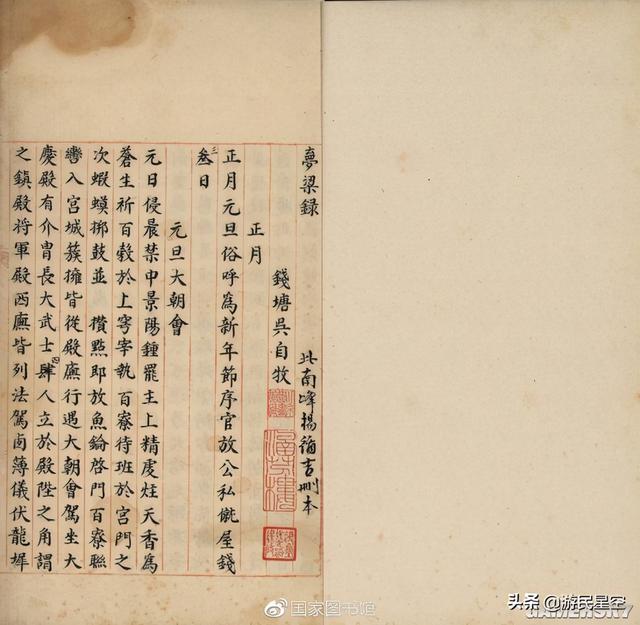 夢梁録
北南峰楊循吉刪本
錢塘吳自牧
正月
正月元旦俗呼爲新年節序官放公私僦屋錢
三
叁日
元旦大朝會
元日侵晨禁中景陽鍾罷主上精虔炷天香爲
蒼生祈百穀於上穹宰執百寮待班於宮門之
次蝦蟆梆鼓並 攢點即放魚鑰啓門百寮聯
轡入宮城簇擁皆從殿廡行遇大朝會駕坐大
慶殿有介胄長大武士肆人立於殿陛之角謂
四
之鎮殿將軍殿西廡皆列法駕鹵薄儀伏龍墀
国家图书馆
头条 @游民星空
GAMERSKY